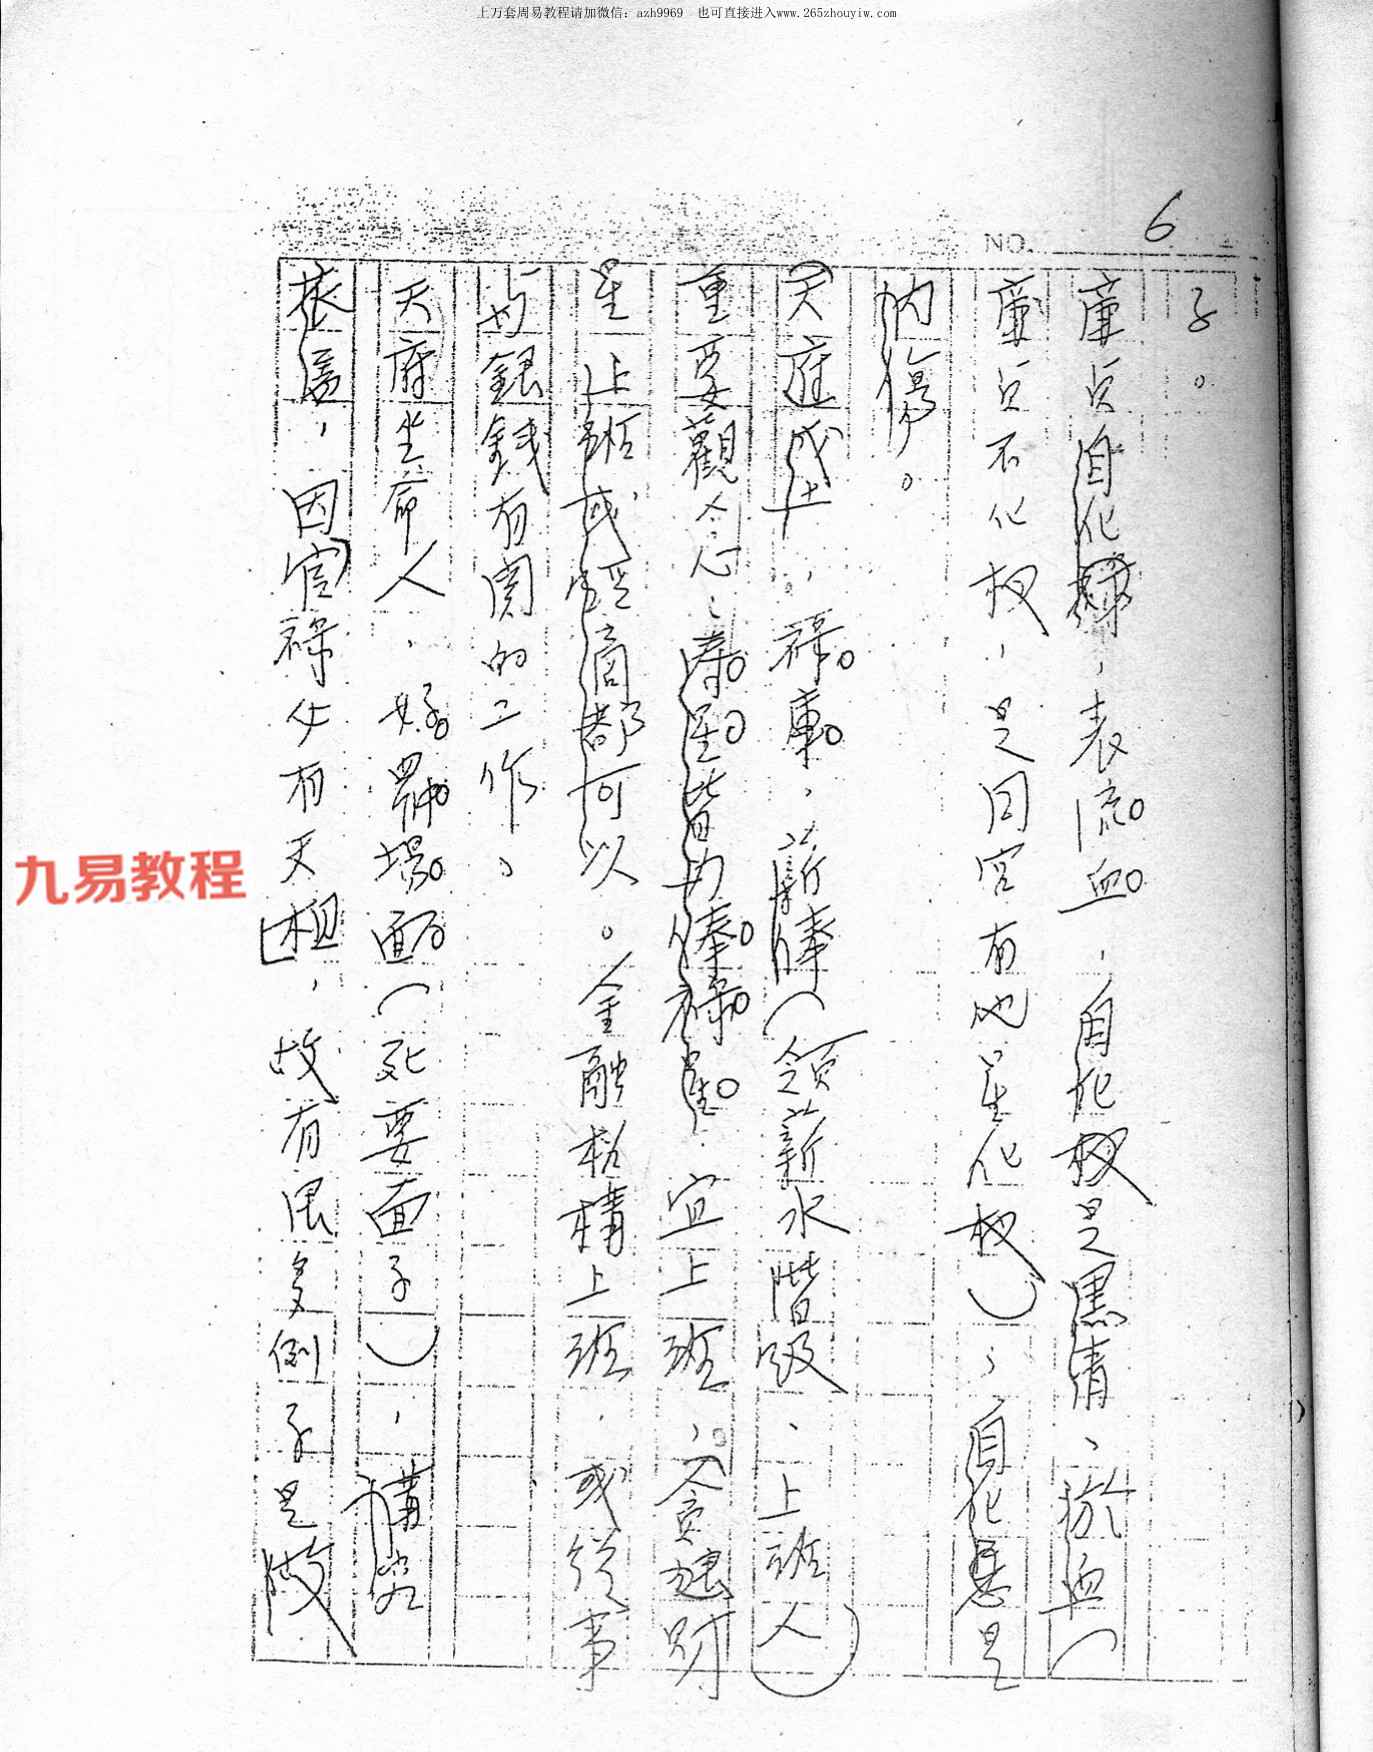 上万套周易教程请加微信：azh9969 也可直接进入www.265zhouyiw.com
NO. 6
子。
廉貞自化祿，表流血，自化权是黑青、瘀血（
廉貞不化权，是同宮有他星化权），自化忌是
内傷。
天庭戊土，祿庫，薪俸（領薪水階級、上班人）
重要觀念：壽星皆为俸祿星，宜上班，入貪逢財
星上班或經商都可以。金融机構上班，或從事
与銀錢有関的工作。
天府坐命人，好擺場面（死要面子），講究
，因官祿必有天相，故有很多例子是做
九易教程